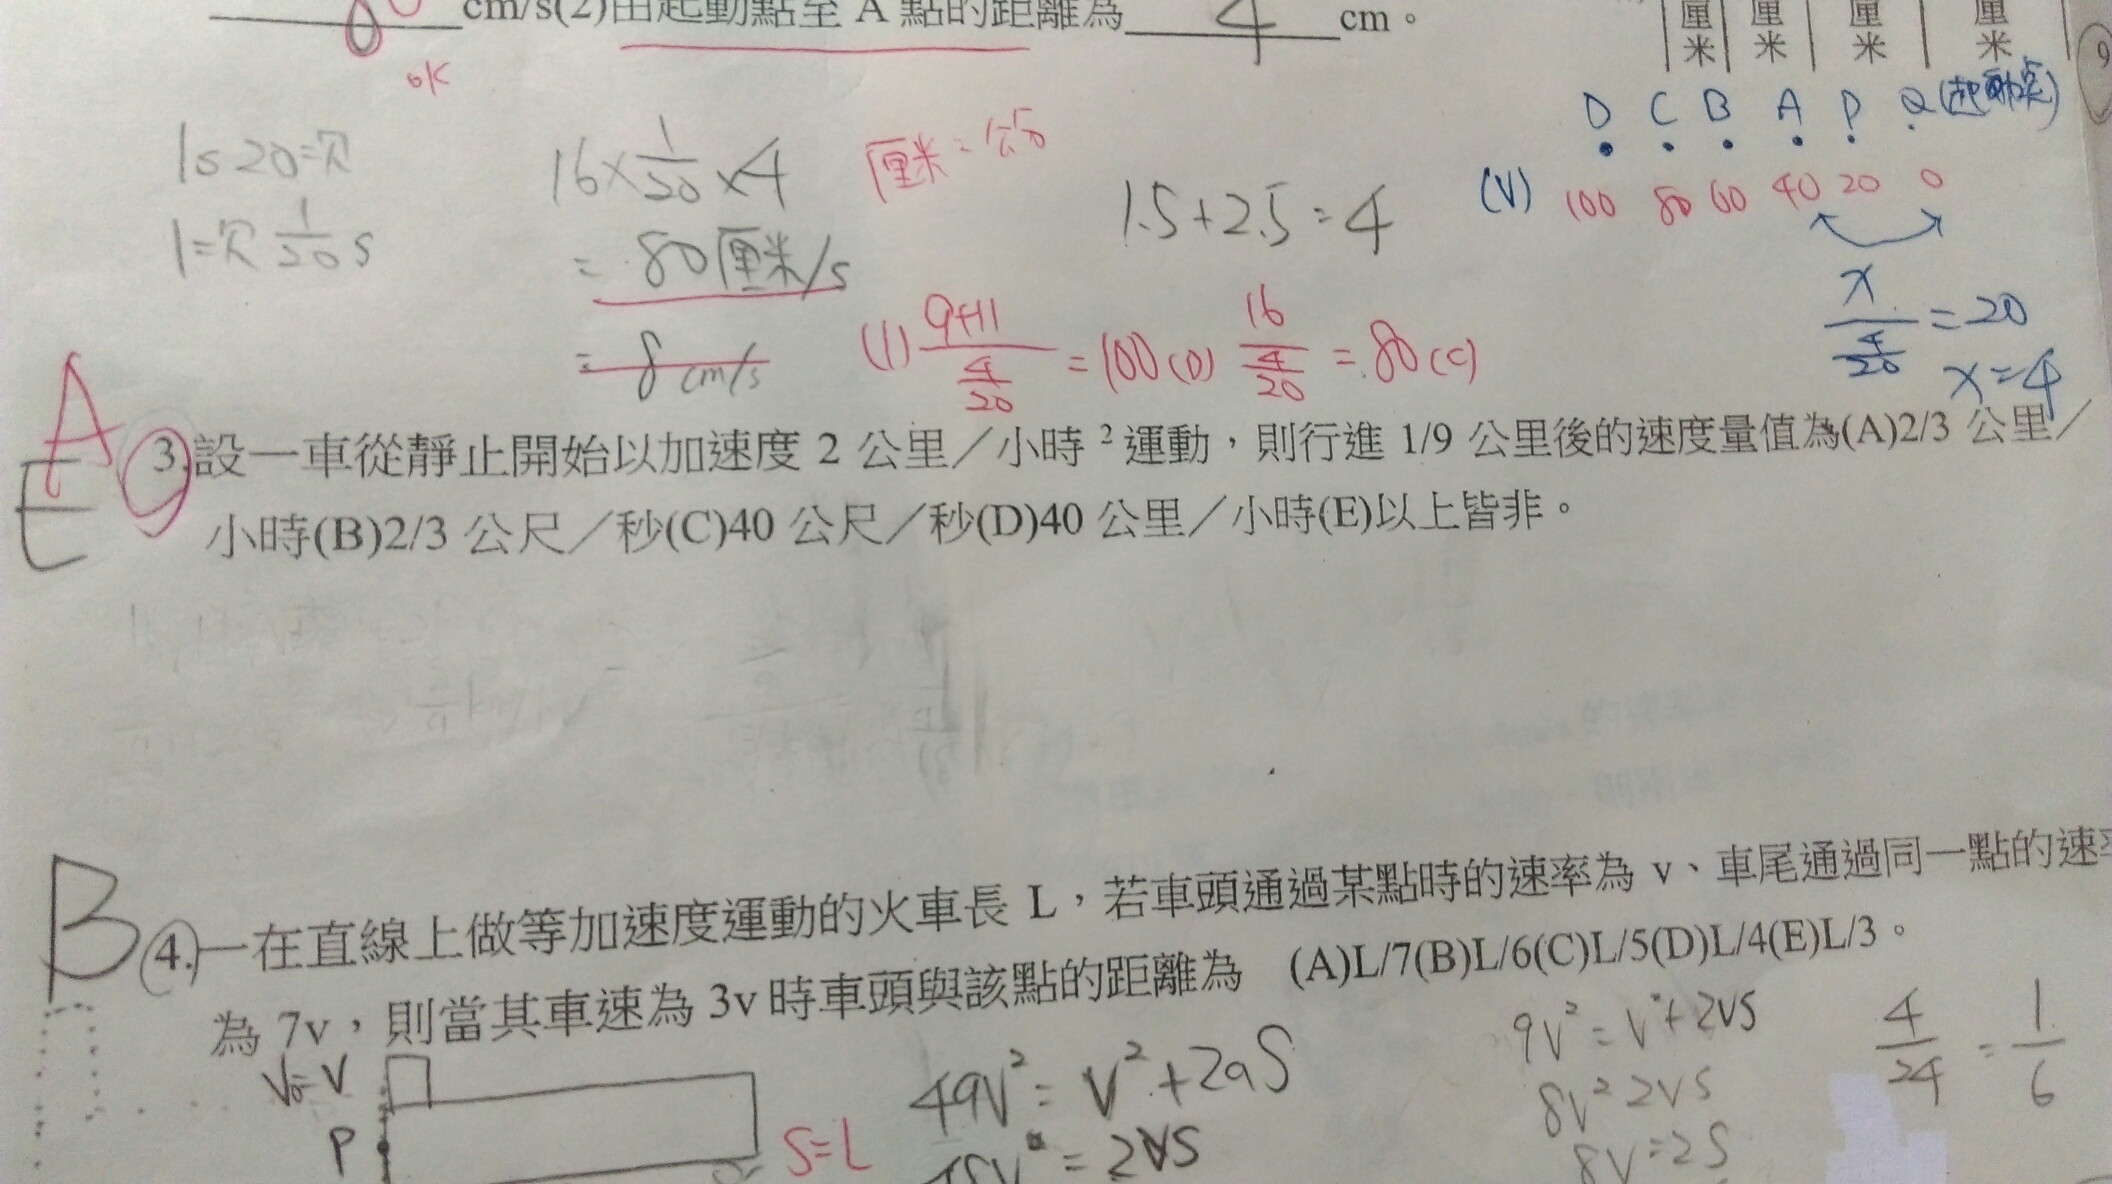 cm/s(2)由起動點至 A 點的距離為 4 cm。
厘米 厘米 厘米 厘米
9
ok
D C B A P Q(起動點)
(V) 100 80 60 40 20 0
1s 20次
1次 1/20 s
16×1/20×4
=80厘米/s
=8cm/s
厘米=公分
1.5+2.5=4
x/(4/20)=20
x=4
(1) (9+11)/(4/20)=100(D) 16/(4/20)=80(C)
A
E
3.設一車從靜止開始以加速度 2 公里／小時²運動，則行進 1/9 公里後的速度量值為(A)2/3 公里／
小時(B)2/3 公尺／秒(C)40 公尺／秒(D)40 公里／小時(E)以上皆非。
B
4.一在直線上做等加速度運動的火車長 L，若車頭通過某點時的速率為 v、車尾通過同一點的速率
為 7v，則當其車速為 3v 時車頭與該點的距離為 (A)L/7(B)L/6(C)L/5(D)L/4(E)L/3。
V₀=V
P
S=L
49V²=V²+2aS
9V²=V²+2VS
8V² 2VS
8V=2S
4/24=1/6